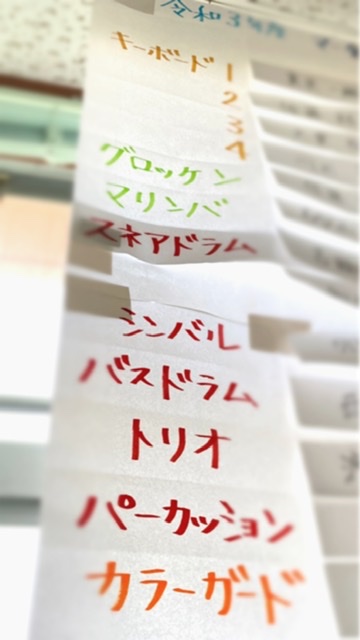 令和3年度
キーボード 1
2
3
4
グロッケン
マリンバ
スネアドラム
シンバル
バスドラム
トリオ
パーカッション
カラーガード